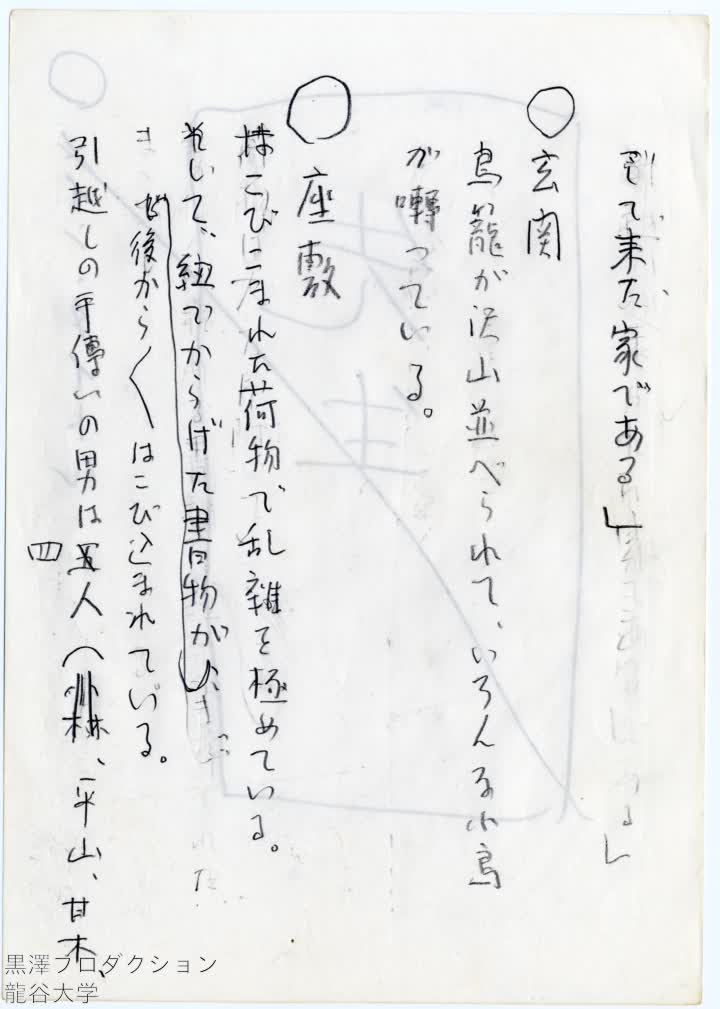 て来た家である」
○玄関
鳥籠が沢山並べられて、いろんな小鳥
が囀っている。
○座敷
はこびこまれた荷物で乱雑を極めている。
て、紐でからげた書物が
後から〱はこび込まれている。
引越しの手傳いの男は四人（小林、平山、甘木、
黒澤プロダクション
龍谷大学